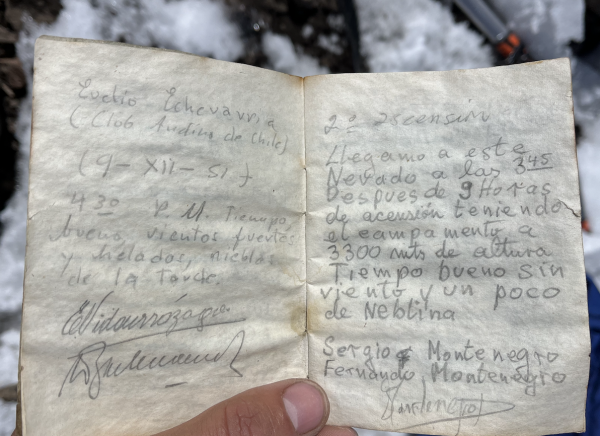 Evelio Echevarría
(Club Andino de Chile)
(9-XII-51)
4 30 P.M. Tiempo
bueno, vientos fuertes
y helados, nieblas
de la tarde.
EVidaurrázaga
2º ascensión
Llegamo a este
Nevado a las 3 45
Despues de 9 Horas
de acensión teniendo
el campamento a
3300 mts de altura
Tiempo bueno sin
viento y un poco
de Neblina
Sergio Montenegro
Fernando Montenegro